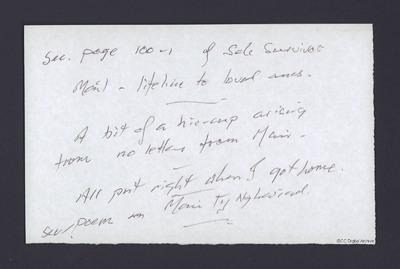 See. page 100-1 of Sole Survivor
Mail - lifeline to loved ones.
A bit of a hic-cup arising
from no letters from Mair -
All put right when I got home.
see poem in Mair Fy Nghariad.
©CC Digital Archive